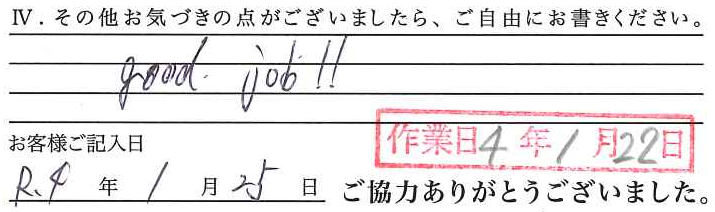 Ⅳ．その他お気づきの点がございましたら、ご自由にお書きください。
good job!!
お客様ご記入日
作業日4年1月22日
R.4年1月25日
ご協力ありがとうございました。